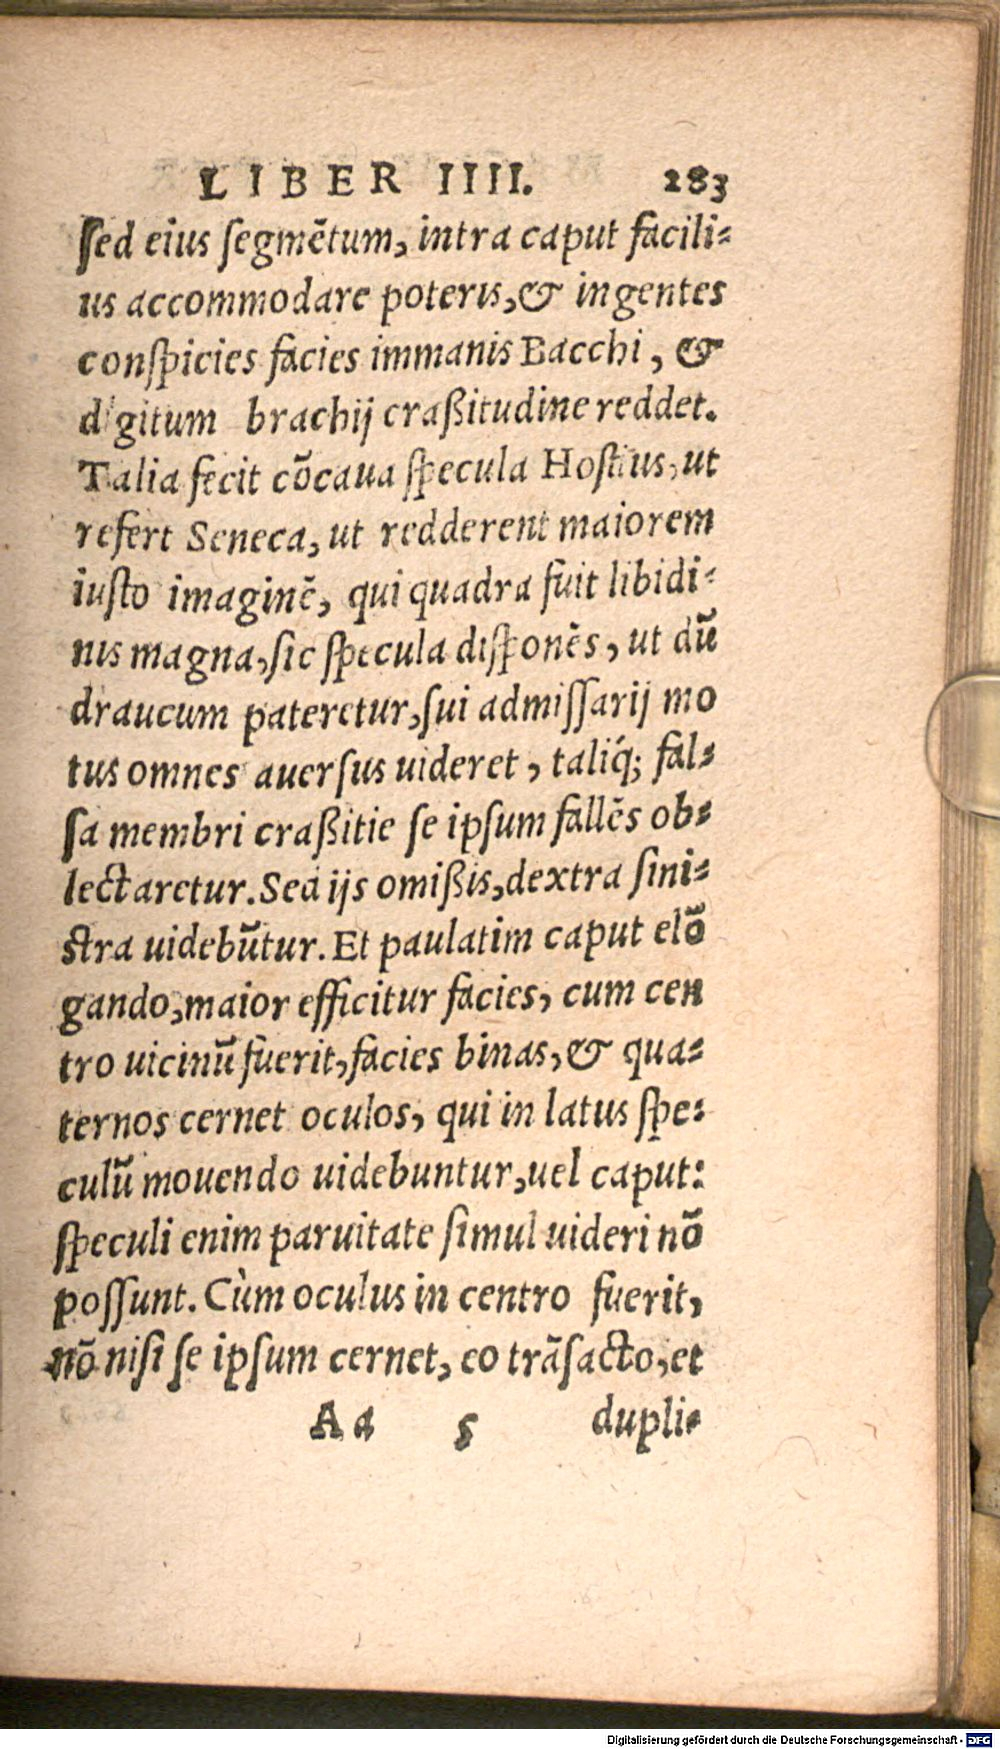 LIBER IIII. 283
sed eius segmētum, intra caput facili-
us accommodare poteris, & ingentes
conspicies facies immanis Bacchi, &
digitum brachij craßitudine reddet.
Talia fecit cōcaua specula Hostius, ut
refert Seneca, ut redderent maiorem
iusto imaginē, qui quadra fuit libidi-
nis magna, sic specula disponēs, ut dū
draucum pateretur, sui admissarij mo
tus omnes auersus uideret, taliq́; fal-
sa membri craßitie se ipsum fallēs ob-
lectaretur. Sed ijs omißis, dextra sini-
stra uidebūtur. Et paulatim caput elō
gando, maior efficitur facies, cum cen
tro uicinū fuerit, facies binas, & qua-
ternos cernet oculos, qui in latus spe-
culū mouendo uidebuntur, uel caput:
speculi enim paruitate simul uideri nō
possunt. Cùm oculus in centro fuerit,
nō nisi se ipsum cernet, eo trāsacto, et
Aa 5 dupli-
Digitalisierung gefördert durch die Deutsche Forschungsgemeinschaft - DFG